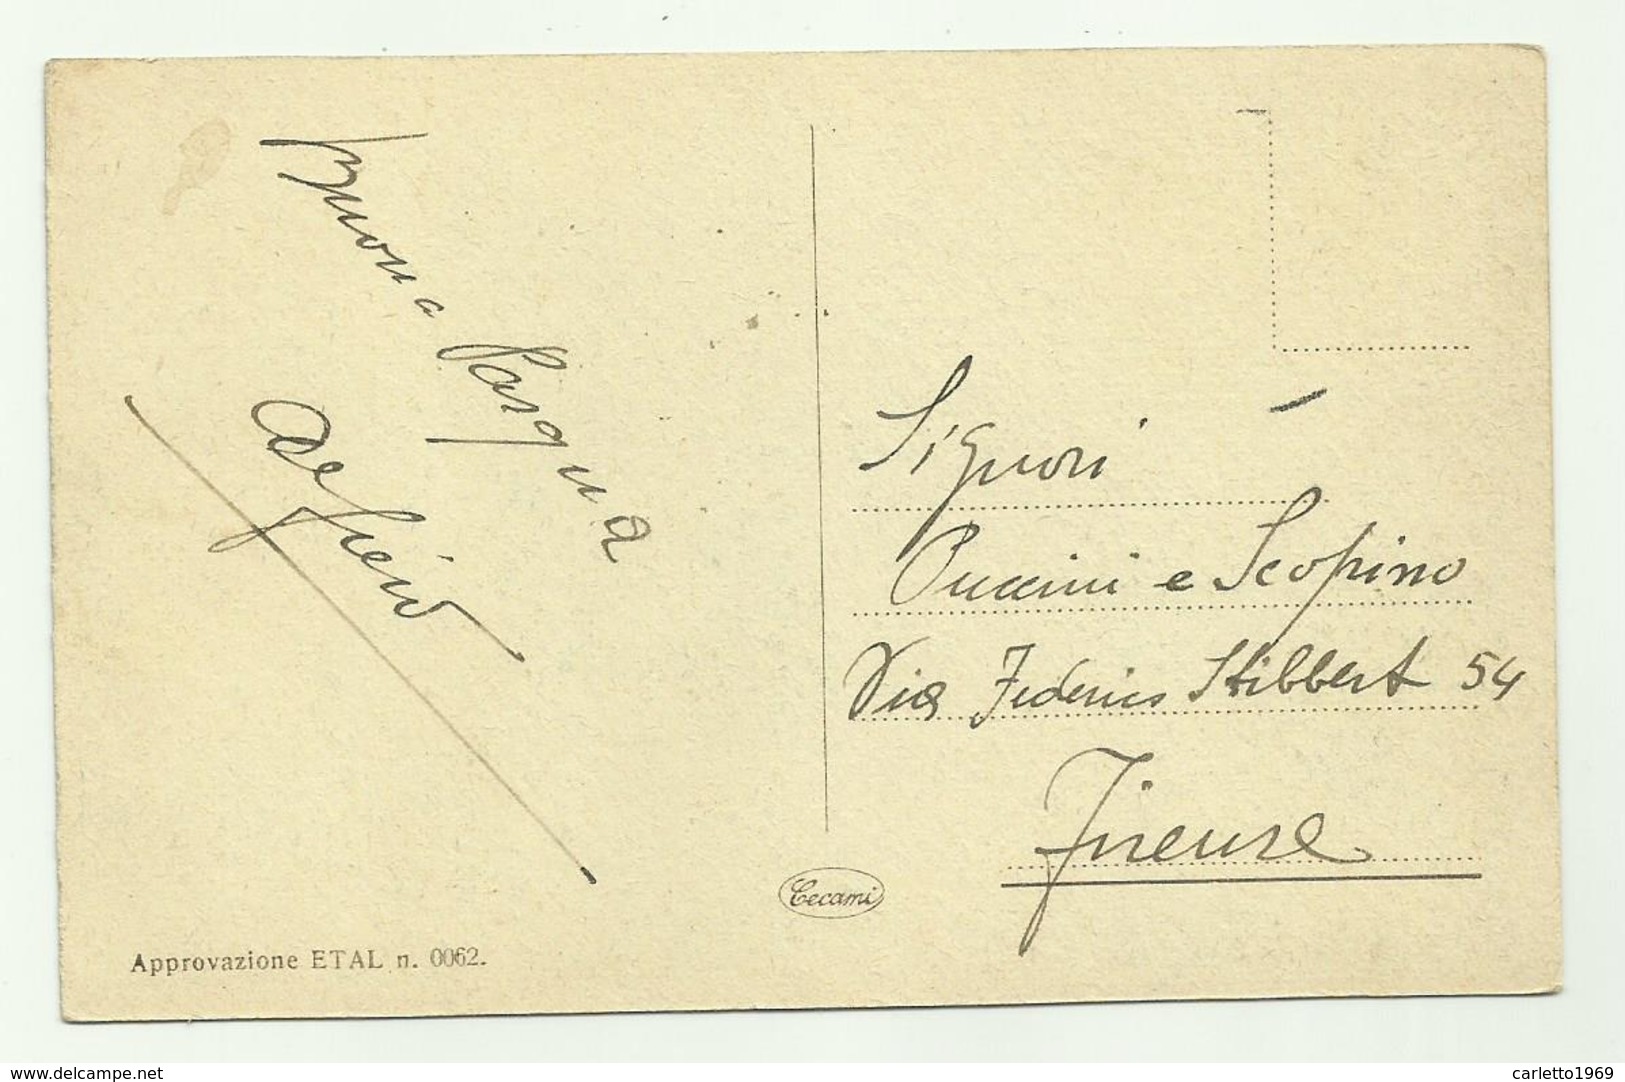 Buona Pasqua
Signori
Puccini e Scopino
Via Federico Stibbert 54
Firenze
Cecami
Approvazione ETAL n. 0062.
www.delcampe.net
carletto1969